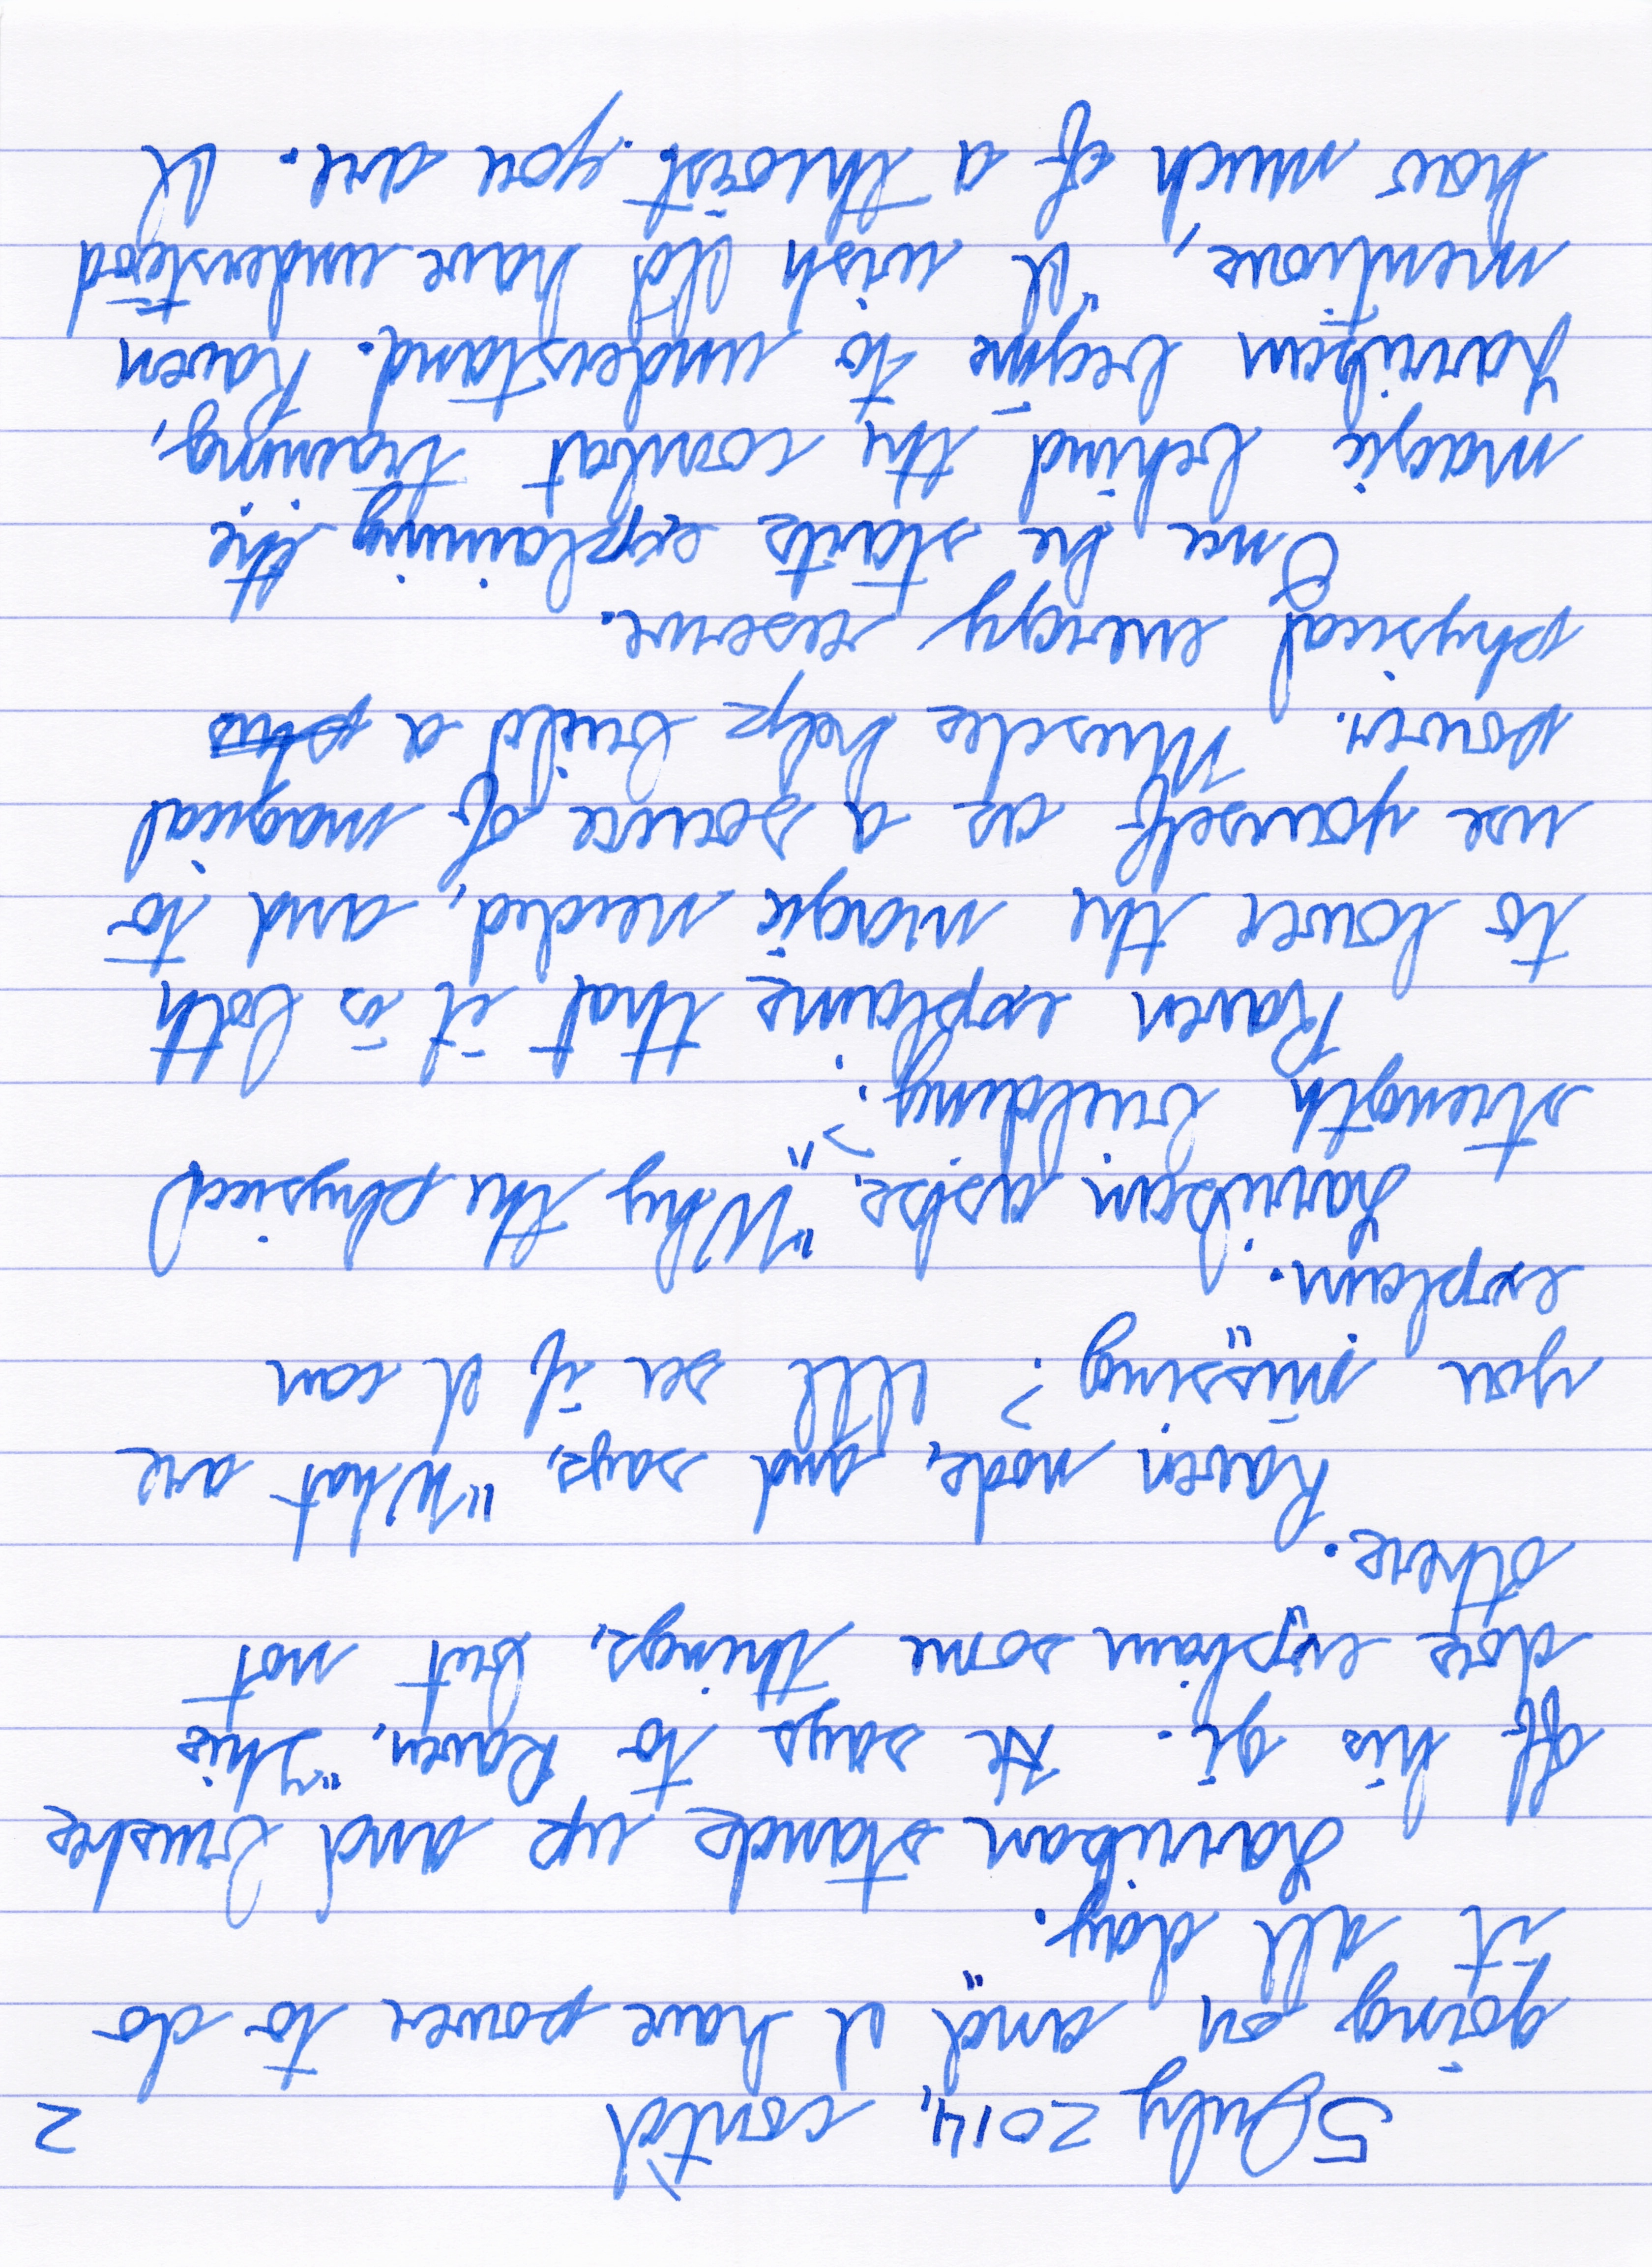 5 July 2014, cont'd 2
going on and I have power to do
it all day."
Harrison stands up and brushes
off his gi. He says to Raven, "This
does explain some things, but not
others."
Raven nods, and says, "What are
you missing? I'll see if I can
explain."
Harrison asks, "Why the physical
strength building?"
Raven explains that it is both
to lower the magic needed, and to
use yourself as a source of magical
power. Muscles help build a
physical energy reserve.
Once he starts explaining the
magic behind the combat training,
Harrison begins to understand. Raven
mentions, "I wish I'd have understood
how much of a theorist you are. I